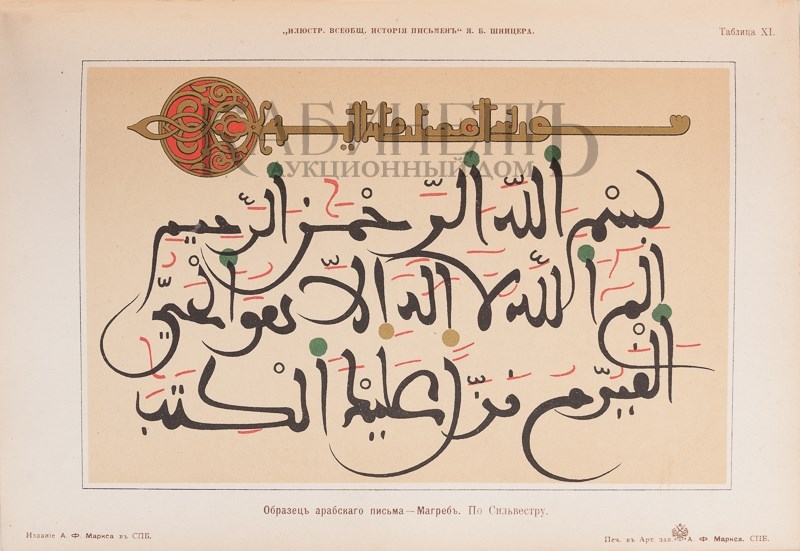 „ИЛЮСТР. ВСЕОБЩ. ИСТОРІЯ ПИСЬМЕНЪ“ Я. Б. ШНИЦЕРА.
Таблица XI.
КАБИНЕТЪ
АУКЦИОННЫЙ ДОМ
بسم الله الرحمن الرحيم
الم الله لا اله الا هو الحي
القيوم نزل عليك الكتب
Образецъ арабскаго письма — Магребъ. По Сильвестру.
Изданіе А. Ф. Маркса въ СПБ.
Печ. въ Арт. зав. А. Ф. Маркса, СПБ.